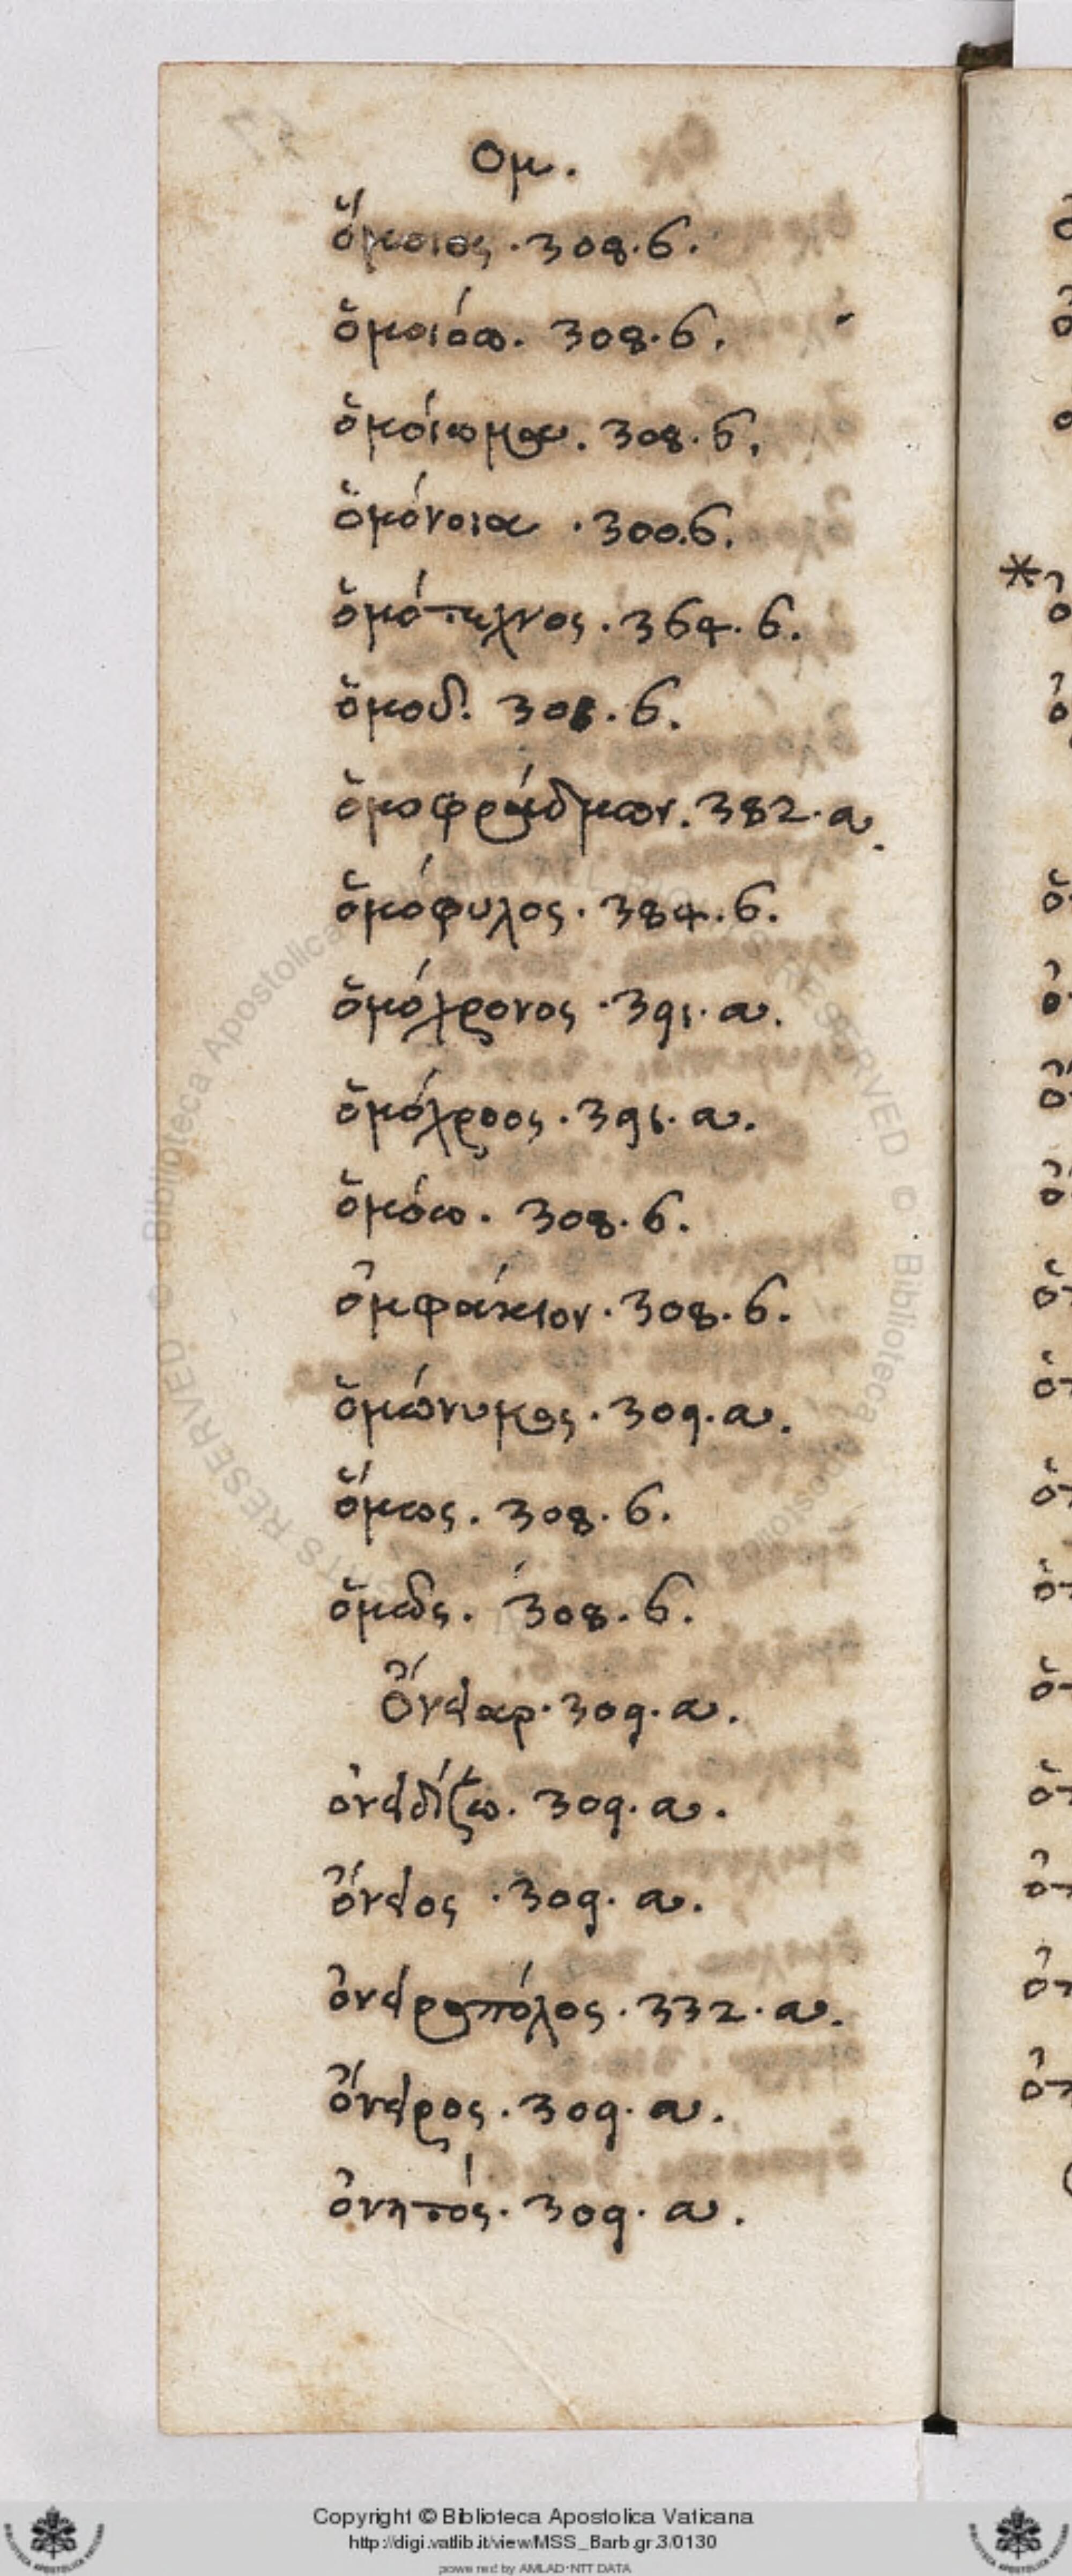 Ομ.
ὅμοιος . 308. б.
ὁμοιόω. 308. б.
ὁμοίωμαι. 308. б.
ὁμόνοια . 300. б.
ὁμότεχνος . 364. б.
ὁμοῦ. 308. б.
ὁμοφράδμων. 382. α.
ὁμόφυλος. 384. б.
ὁμόχρονος . 391. α.
ὁμόχροος . 391. α.
ὁμόω. 308. б.
ὀμφάκιον. 308. б.
ὁμώνυμος. 309. α.
ὅμως. 308. б.
ὁμῶς. 308. б.
Ὄνειαρ. 309. α.
ὀνειδίζω. 309. α.
ὄνειος . 309. α.
ὀνειροπόλος . 332. α.
ὄνειρος . 309. α.
ὀνητός. 309. α.
Copyright © Biblioteca Apostolica Vaticana
http://digi.vatlib.it/view/MSS_Barb.gr.3/0130
powered by AMLAD-NTT DATA